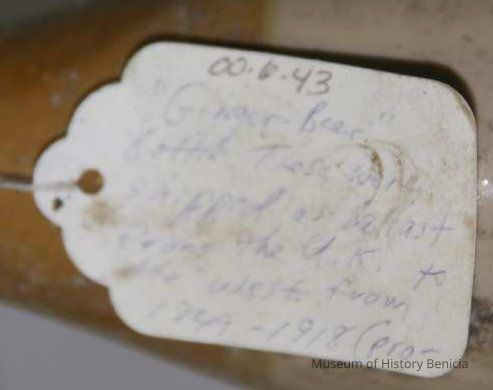 00.6.43
"Ginger Beer"
bottle These were
shipped as ballast
from the U.K. to
the west from
-1918 (pro-
Museum of History Benicia